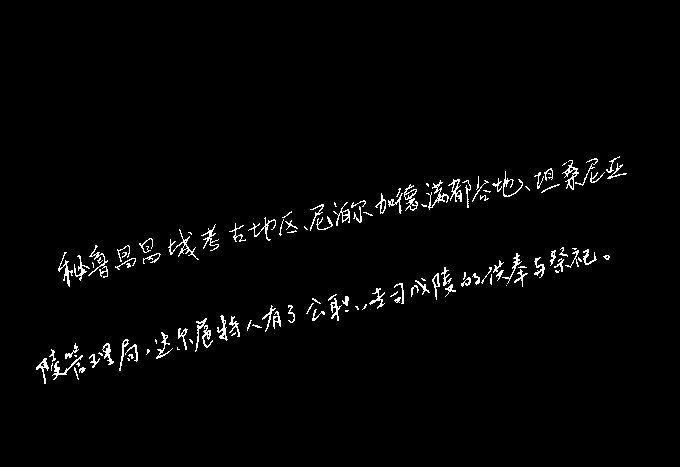 秘鲁昌昌城考古地区、尼泊尔加德满都谷地、坦桑尼亚
陵管理局，达尔扈特人有了公职、专司成陵的供奉与祭祀。